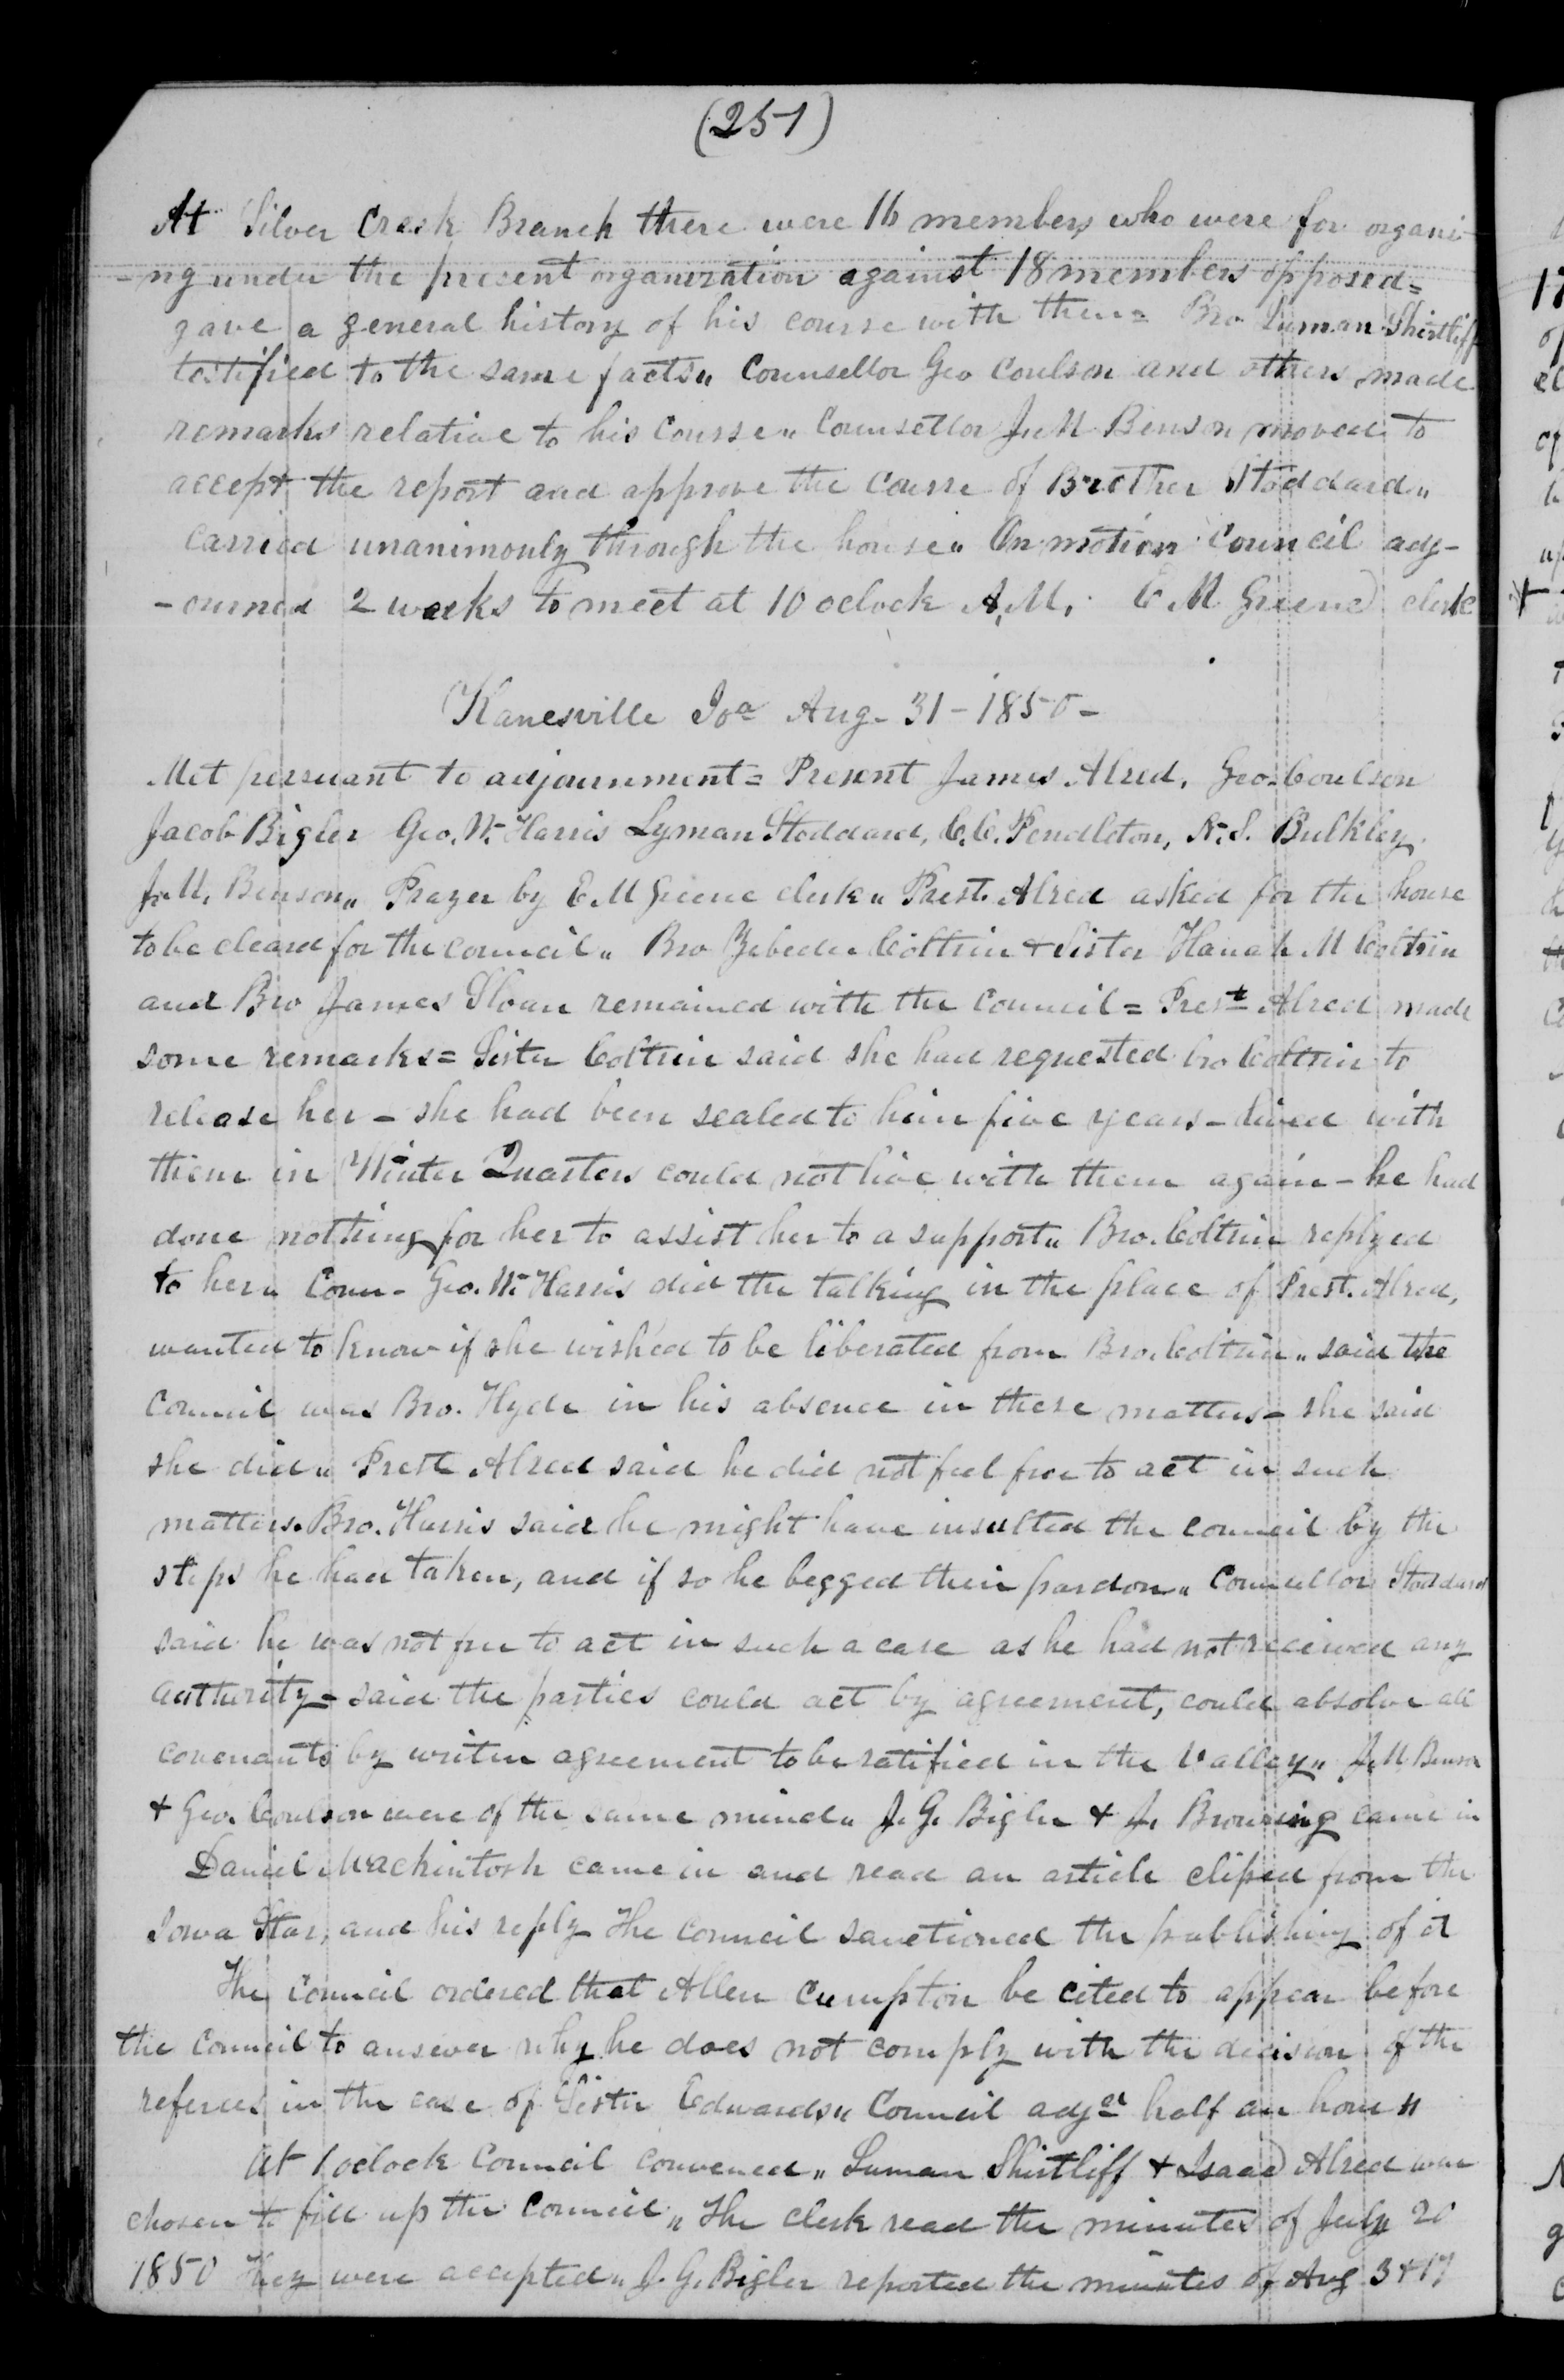 (251)
At Silver Creek Branch there were 16 members who were for organi-
-ng under the present organization against 18 members opposed=
gave a general history of his course with them= Bro Luman Shirtliff
testified to the same facts" Counsellor Geo Coulson and others made
remarks relative to his Course" Counsellor J. M. Benson moved to
accept the report and approve the Course of Brother Stoddard"
carried unanimouly through the house" On motion Council adj-
-ourned 2 weeks to meet at 10 oclock A.M. E M Greene clerk
Kanesville Ioa Aug- 31-1850-
Met persuant to adjournment= Present James Alred, Geo. Coulson
Jacob Bigler Geo. W. Harris Lyman Stoddard, C.C. Pendleton, N.S. Bulkley
J. M. Benson" Prayer by E. M Greene clerk" Prest. Alred asked for the house
to be cleard for the council" Bro Zebedee Coltrin + Sister Hanah M Coltrin
and Bro James Sloan remained with the Council= Prest Alred made
some remarks= Sister Coltrin said she had requested bro Coltrin to
release her- she had been sealed to him five years- lived with
them in Winter Quarters could not live with them again- he had
done nothing for her to assist her to a support" Bro. Coltrin replyed
to her" Coun- Geo. W. Harris did the talking in the place of Prest. Alred,
wanted to know if she wished to be liberated from Bro. Coltrin" said the
Council was Bro. Hyde in his absence in these matters- she said
she did" Prest Alred said he did not feel free to act in such
matters. Bro. Harris said he might have insulted the council by the
steps he had taken, and if so he begged their pardon" Councillor Stoddard
said he was not free to act in such a case as he had not received any
authority- said the parties could act by agreement, could absolve all
covenants by writen agreement to be ratified in the Valley" J. M Benson
+ Geo. Coulson were of the same mind" J. G. Bigler + J. Browning came in
Daniel Mackintosh came in and read an article cliped from the
Iowa Star, and his reply The Council sanctioned the publishing of it
The Council ordered that Allen Cumpton be cited to appear before
the Council to answer why he does not comply with the decision of the
referees in the case of Sister Edwards" Council adjd half an hour"
At 1 oclock Council convened" Luman Shirtliff + Isaac Alred were
chosen to fill up the Council" The clerk read the minutes of July 20
1850 They were accepted" J. G. Bigler reported the minutes of Aug 3 + 17